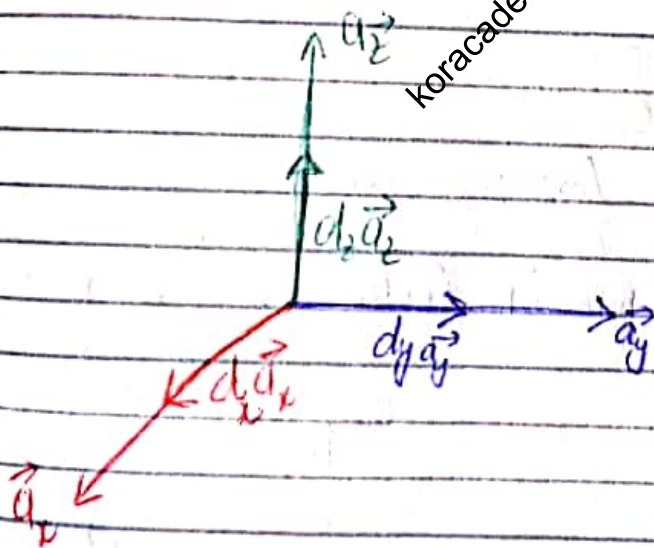 a⃗z
koracade
dz a⃗z
dy a⃗y
a⃗y
dx a⃗x
a⃗x